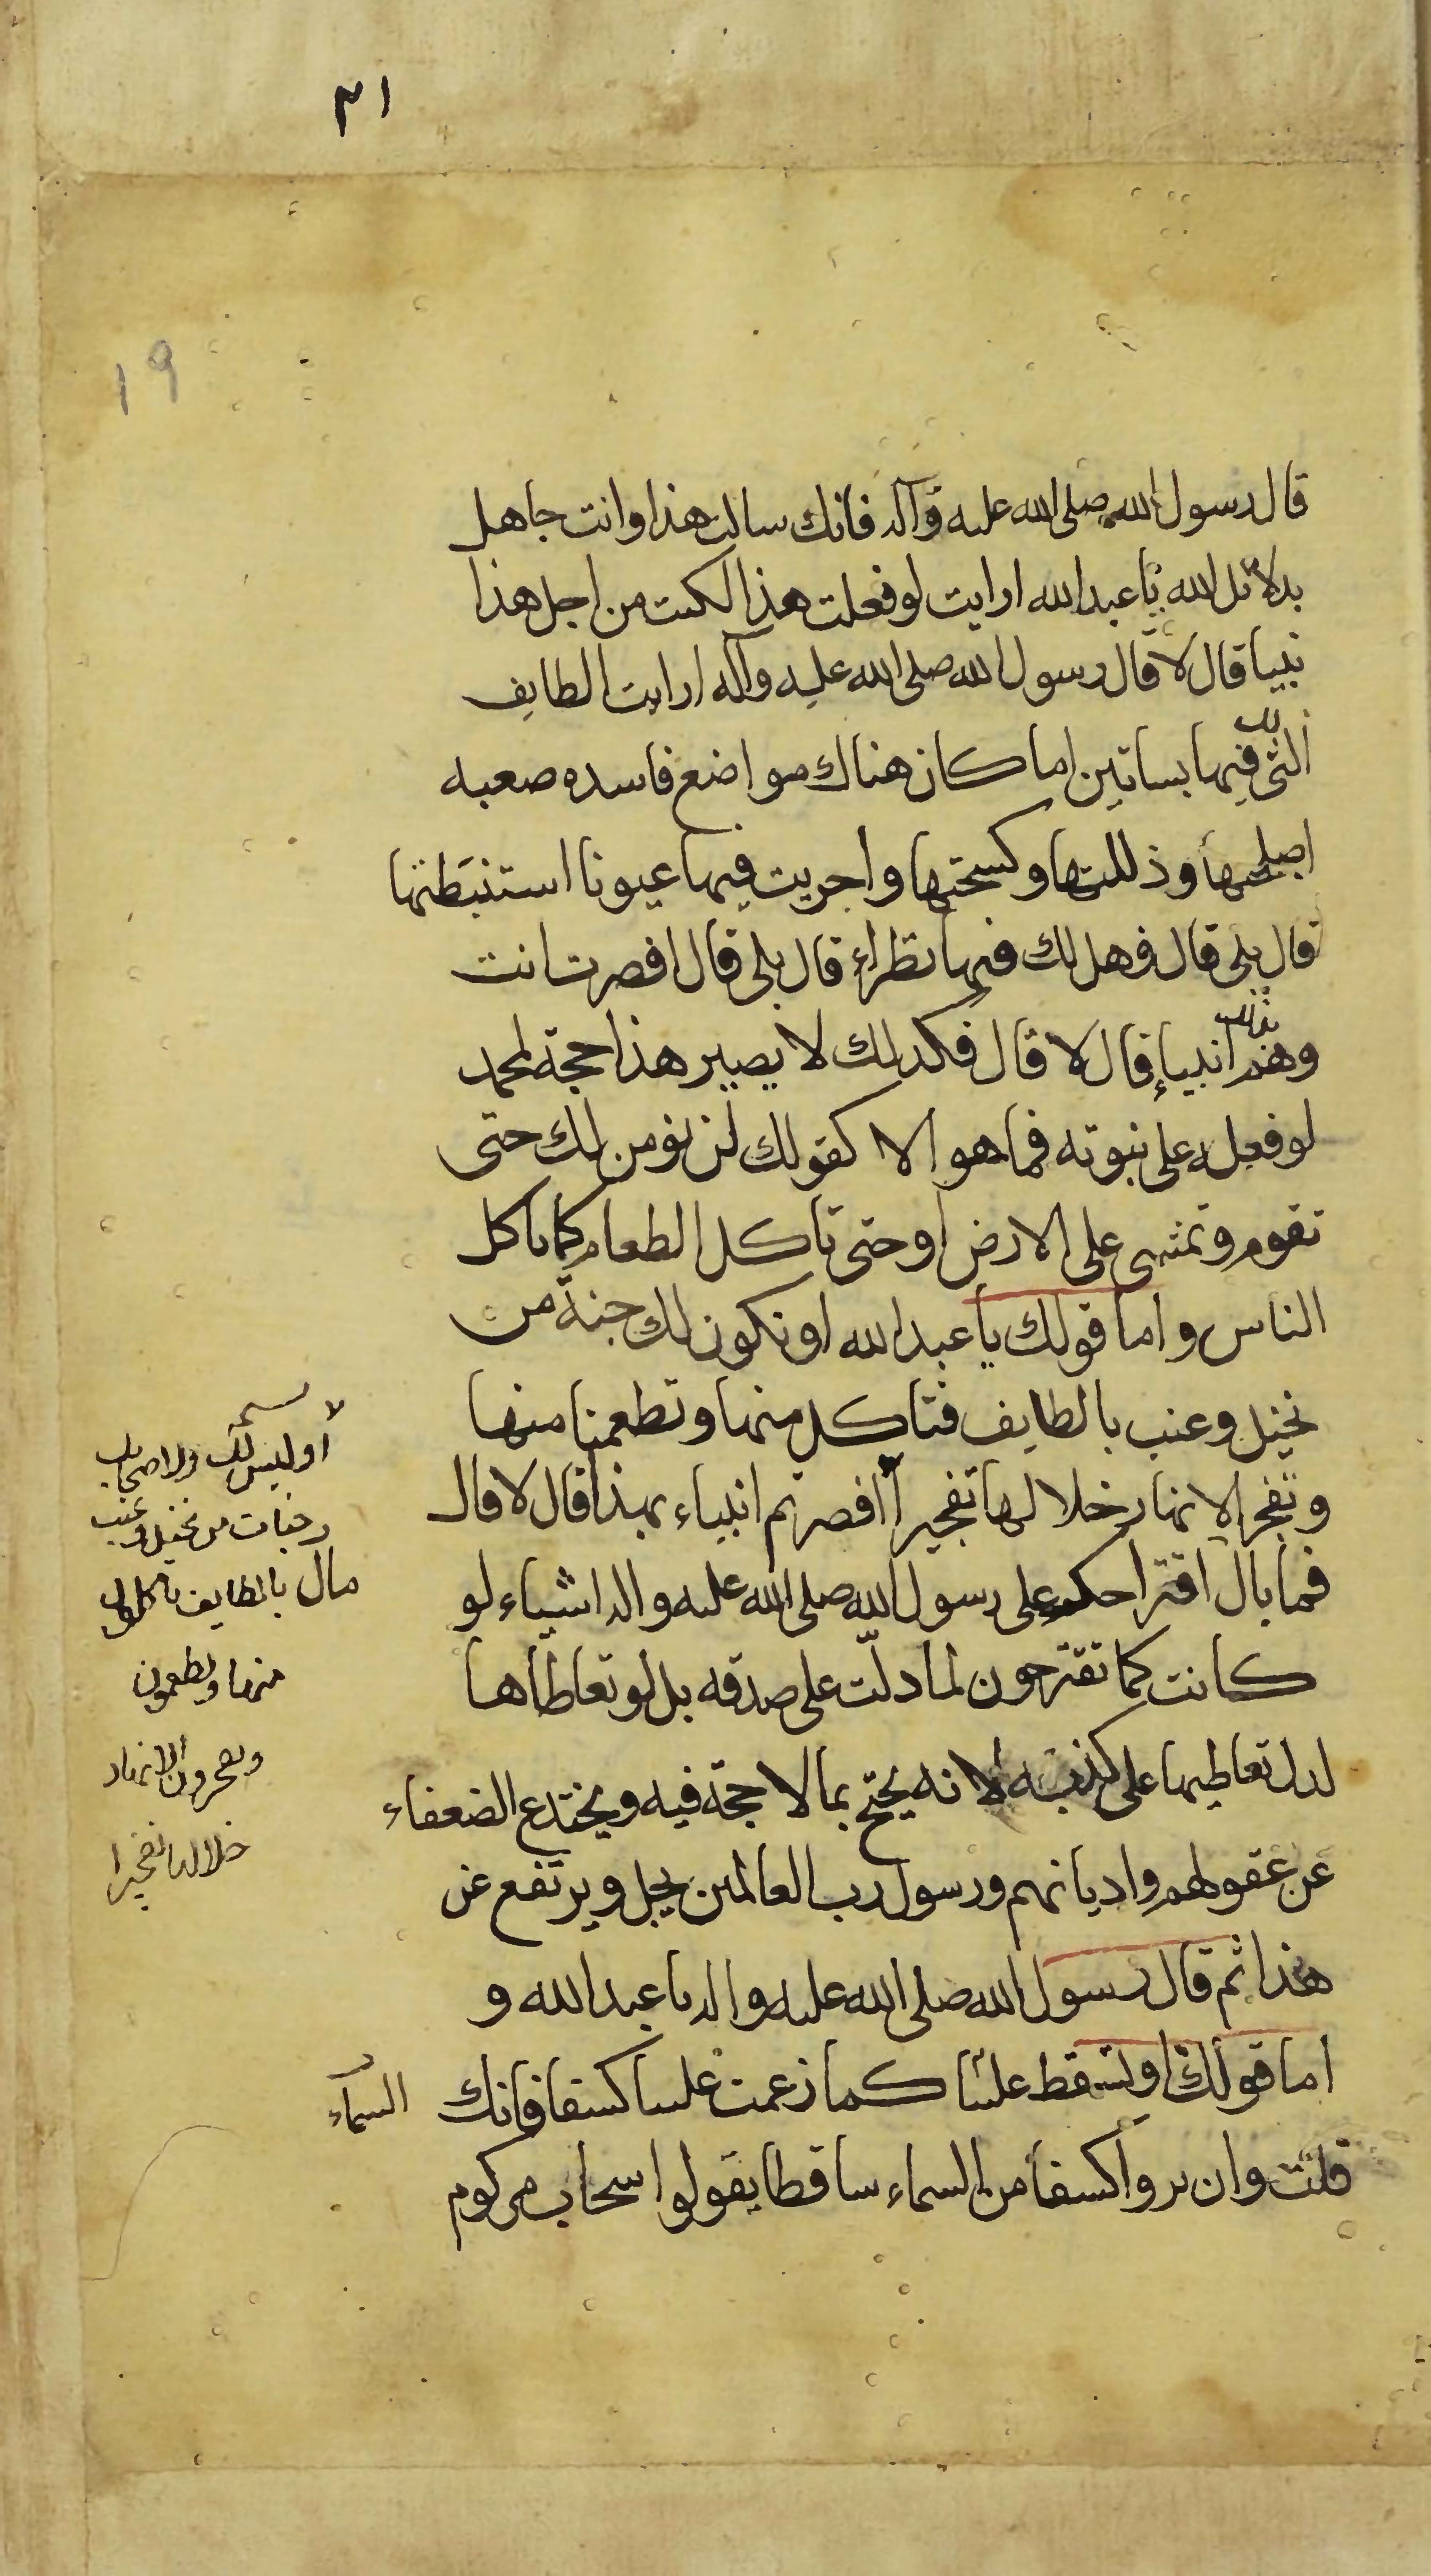 ٣١
١٩
قال رسول الله صلى الله عليه وآله فانك سالت هذا وانت جاهل
بدلائل الله يا عبد الله ارايت لو فعلت هذا لكنت من اجل هذا
نبيا قال لا قال رسول الله صلى الله عليه وآله ارايت الطايف
لك
التى فيها بساتين اما كان هناك مواضع فاسده صعبه
اصلحتها وذللتها وكسحتها واجريت فيها عيونا استنبطتها
قال بلى قال فهل لك فيها نظراء قال بلى قال افصرت انت
بذلك
وهم انبياء قال لا قال فكذلك لا يصير هذا حجة لمحمد
لو فعله على نبوته فما هو الا كقولك لن نؤمن لك حتى
تقوم وتمشى على الارض او حتى تاكل الطعام كما ياكل
الناس واما قولك يا عبد الله او تكون لك جنة من
نخيل وعنب بالطايف فتاكل منها وتطعمنا منها
وتفجر الانهار خلالها تفجيرا افصرتم انبياء بهذا قال لا قال
فما بال اقتراحكم على رسول الله صلى الله عليه واله اشياء لو
كانت كما تقترحون لما دلت على صدقه بل لو تعاطاها
لدل تعاطيها على كذبه لانه يحتج بما لا حجة فيه ويختدع الضعفاء
عن عقولهم واديانهم ورسول رب العالمين يجل ويرتفع عن
هذا ثم قال رسول الله صلى الله عليه واله يا عبد الله و
اما قولك او تسقط علينا كما زعمت علينا كسفا فانك
قلت وان يروا كسفا من السماء ساقطا يقولوا سحاب مركوم
أوليس لك ولاصحابك
جنات من نخيل وعنب
بالطايف تاكلون
منها وتطعمون
وتفجرون الانهار
خلالها تفجيرا
السماء